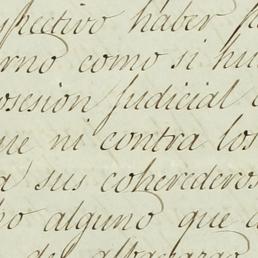 spectivo haber p
erno como si hu
osesion judicial
ue ni contra los
a sus coherederos
ho alguno que
de albaceazgo